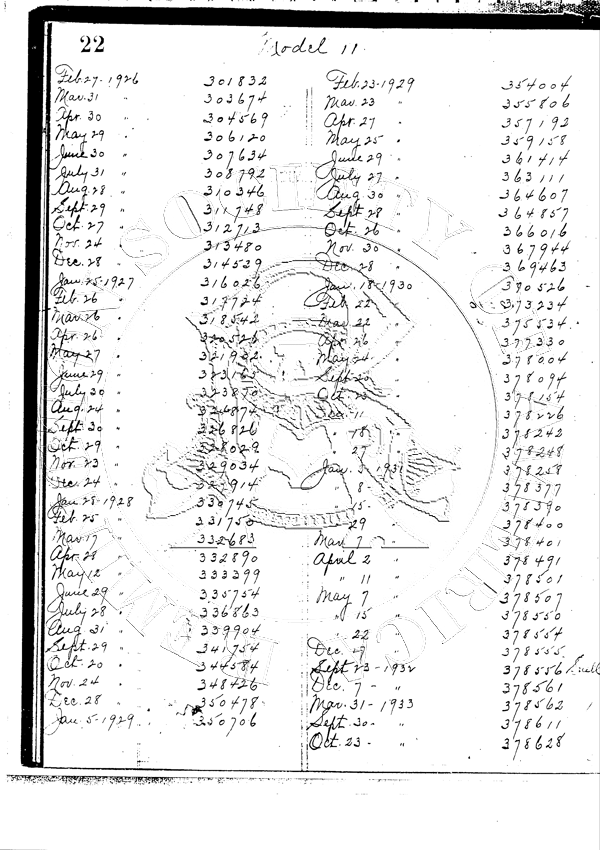 22
Model 11
Feb. 27-1926 301832
Mar. 31 " 303674
Apr. 30 " 304569
May 29 " 306120
June 30 " 307634
July 31 " 308792
Aug 28 " 310346
Sept. 29 " 311748
Oct. 27 " 312713
Nov. 24 " 313480
Dec. 28 " 314539
Jan. 25-1927 316026
Feb. 26 " 317724
Mar. 26 " 318542
Apr. 26 " 320526
May 27 " 321902
June 29 " 323165
July 30 " 323870
Aug. 24 " 324874
Sept. 30 " 326826
Oct. 29 " 328029
Nov. 23 " 329034
Dec. 24 "
Jan. 28-1928 330745
Feb. 25 " 331750
Mar. 17 " 332683
Apr. 28 " 332890
May 12 " 333399
June 29 " 335754
July 28 " 336863
Aug. 31 " 339904
Sept. 29 " 341754
Oct. 20 " 344584
Nov. 24 " 348426
Dec. 28 " 350478
Jan. 5-1929 350706
Feb. 23-1929 354004
Mar. 23 " 355806
Apr. 27 " 357192
May 25 " 359158
June 29 " 361414
July 27 " 363111
Aug 30 " 364607
Sept 28 " 364857
Oct. 26 " 366016
Nov. 30 " 367944
Dec. 28 " 369463
Jan. 18-1930 370526
Feb 22 " 373234
Mar. 22 " 375534
Apr. 26 " 377330
May 24 " 378004
Sept. 378094
Oct. 378154
Dec. 11 378226
" 18 " 378242
" 27 " 378248
Jan. 3-1931 378258
" 8 " 378377
" 15 " 378390
" 29 " 378400
Mar. 7 " 378401
April 2 " 378491
" 11 " 378501
May 7 " 378507
" 15 " 378550
" 22 " 378554
Dec. " 378555
Sept 23-1932 378556
Dec. 7 - " 378561
Mar. 31-1933 378562
Sept. 30 - " 378611
Oct. 23 - " 378628
SOCIETY
AMERICA
REMINGTON